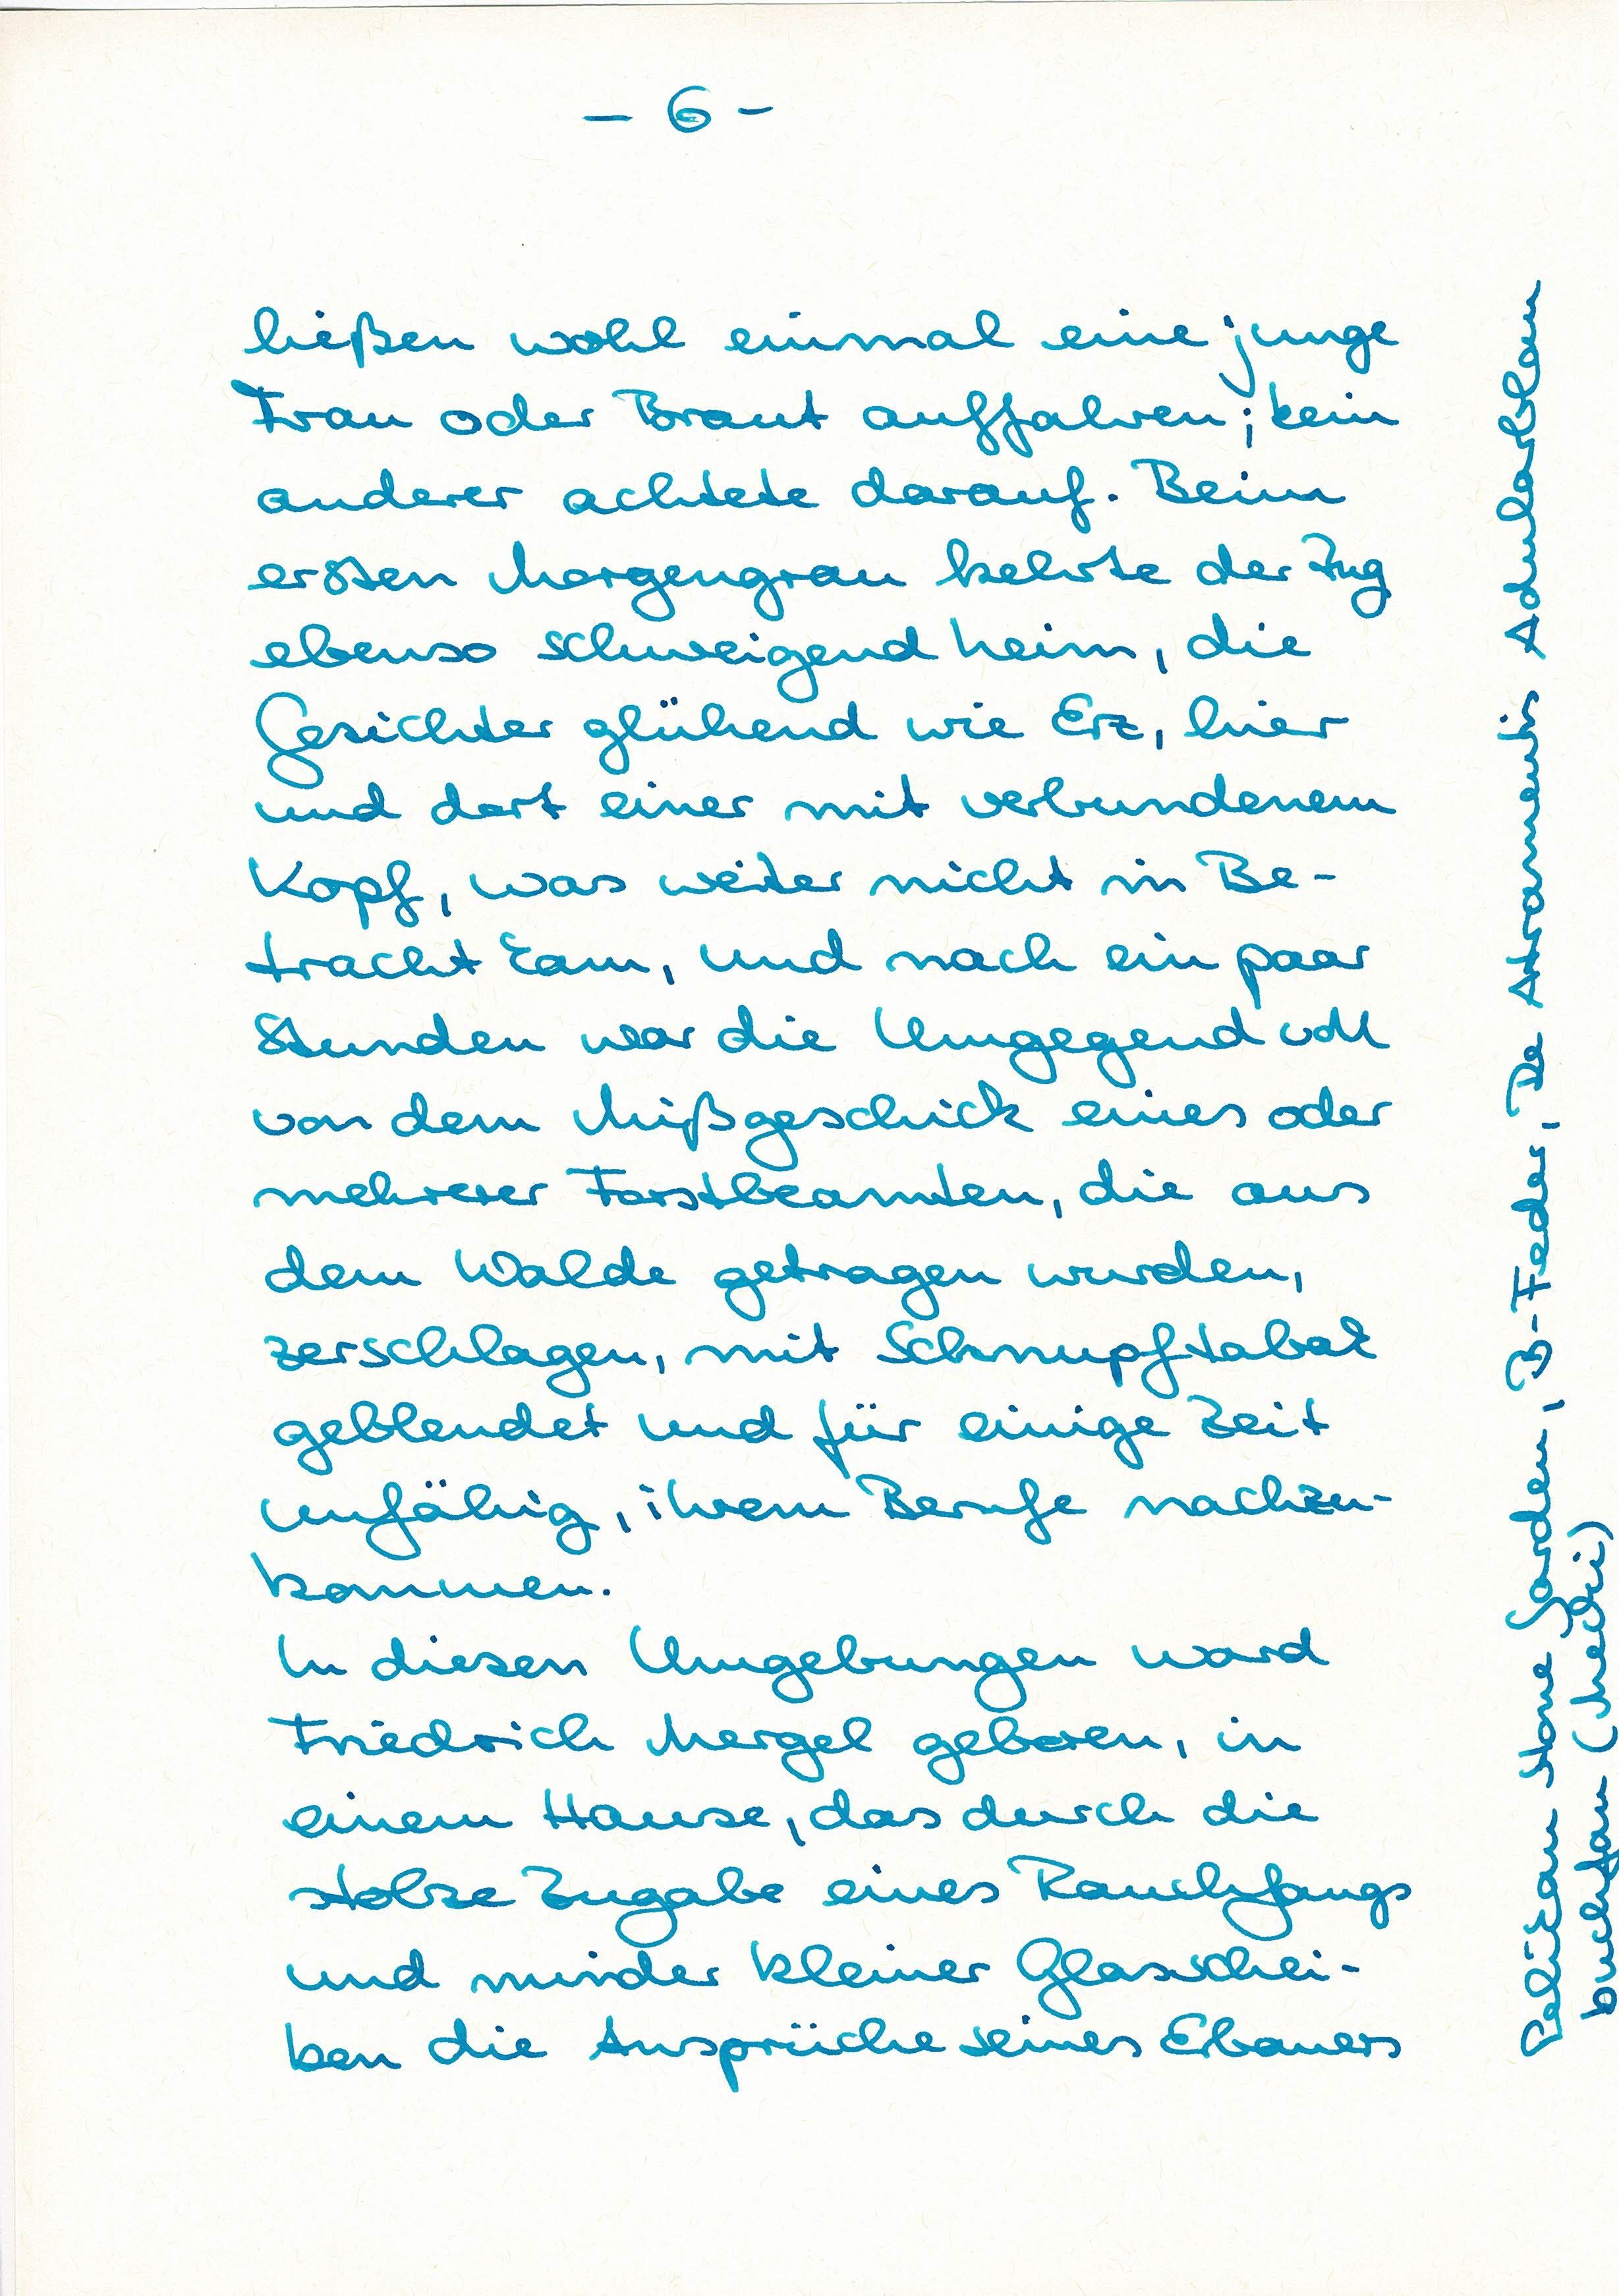 – 6 –
ließen wohl einmal eine junge
Frau oder Braut auffahren; kein
anderer achtete darauf. Beim
ersten Morgengrau kehrte der Zug
ebenso schweigend heim, die
Gesichter glühend wie Erz, hier
und dort einer mit verbundenem
Kopf, was weiter nicht in Be-
tracht kam, und nach ein paar
Stunden war die Umgegend voll
von dem Mißgeschick eines oder
mehrerer Forstbeamten, die aus
dem Walde getragen wurden,
zerschlagen, mit Schnupftabak
geblendet und für einige Zeit
unfähig, ihrem Berufe nachzu-
kommen.
In diesen Umgebungen ward
Friedrich Mergel geboren, in
einem Hause, das durch die
stolze Zugabe eines Rauchfangs
und minder kleiner Glasschei-
ben die Ansprüche seines Erbauers
Pelikan Stone Garden, B-Feder, De Atramentis Adularblau